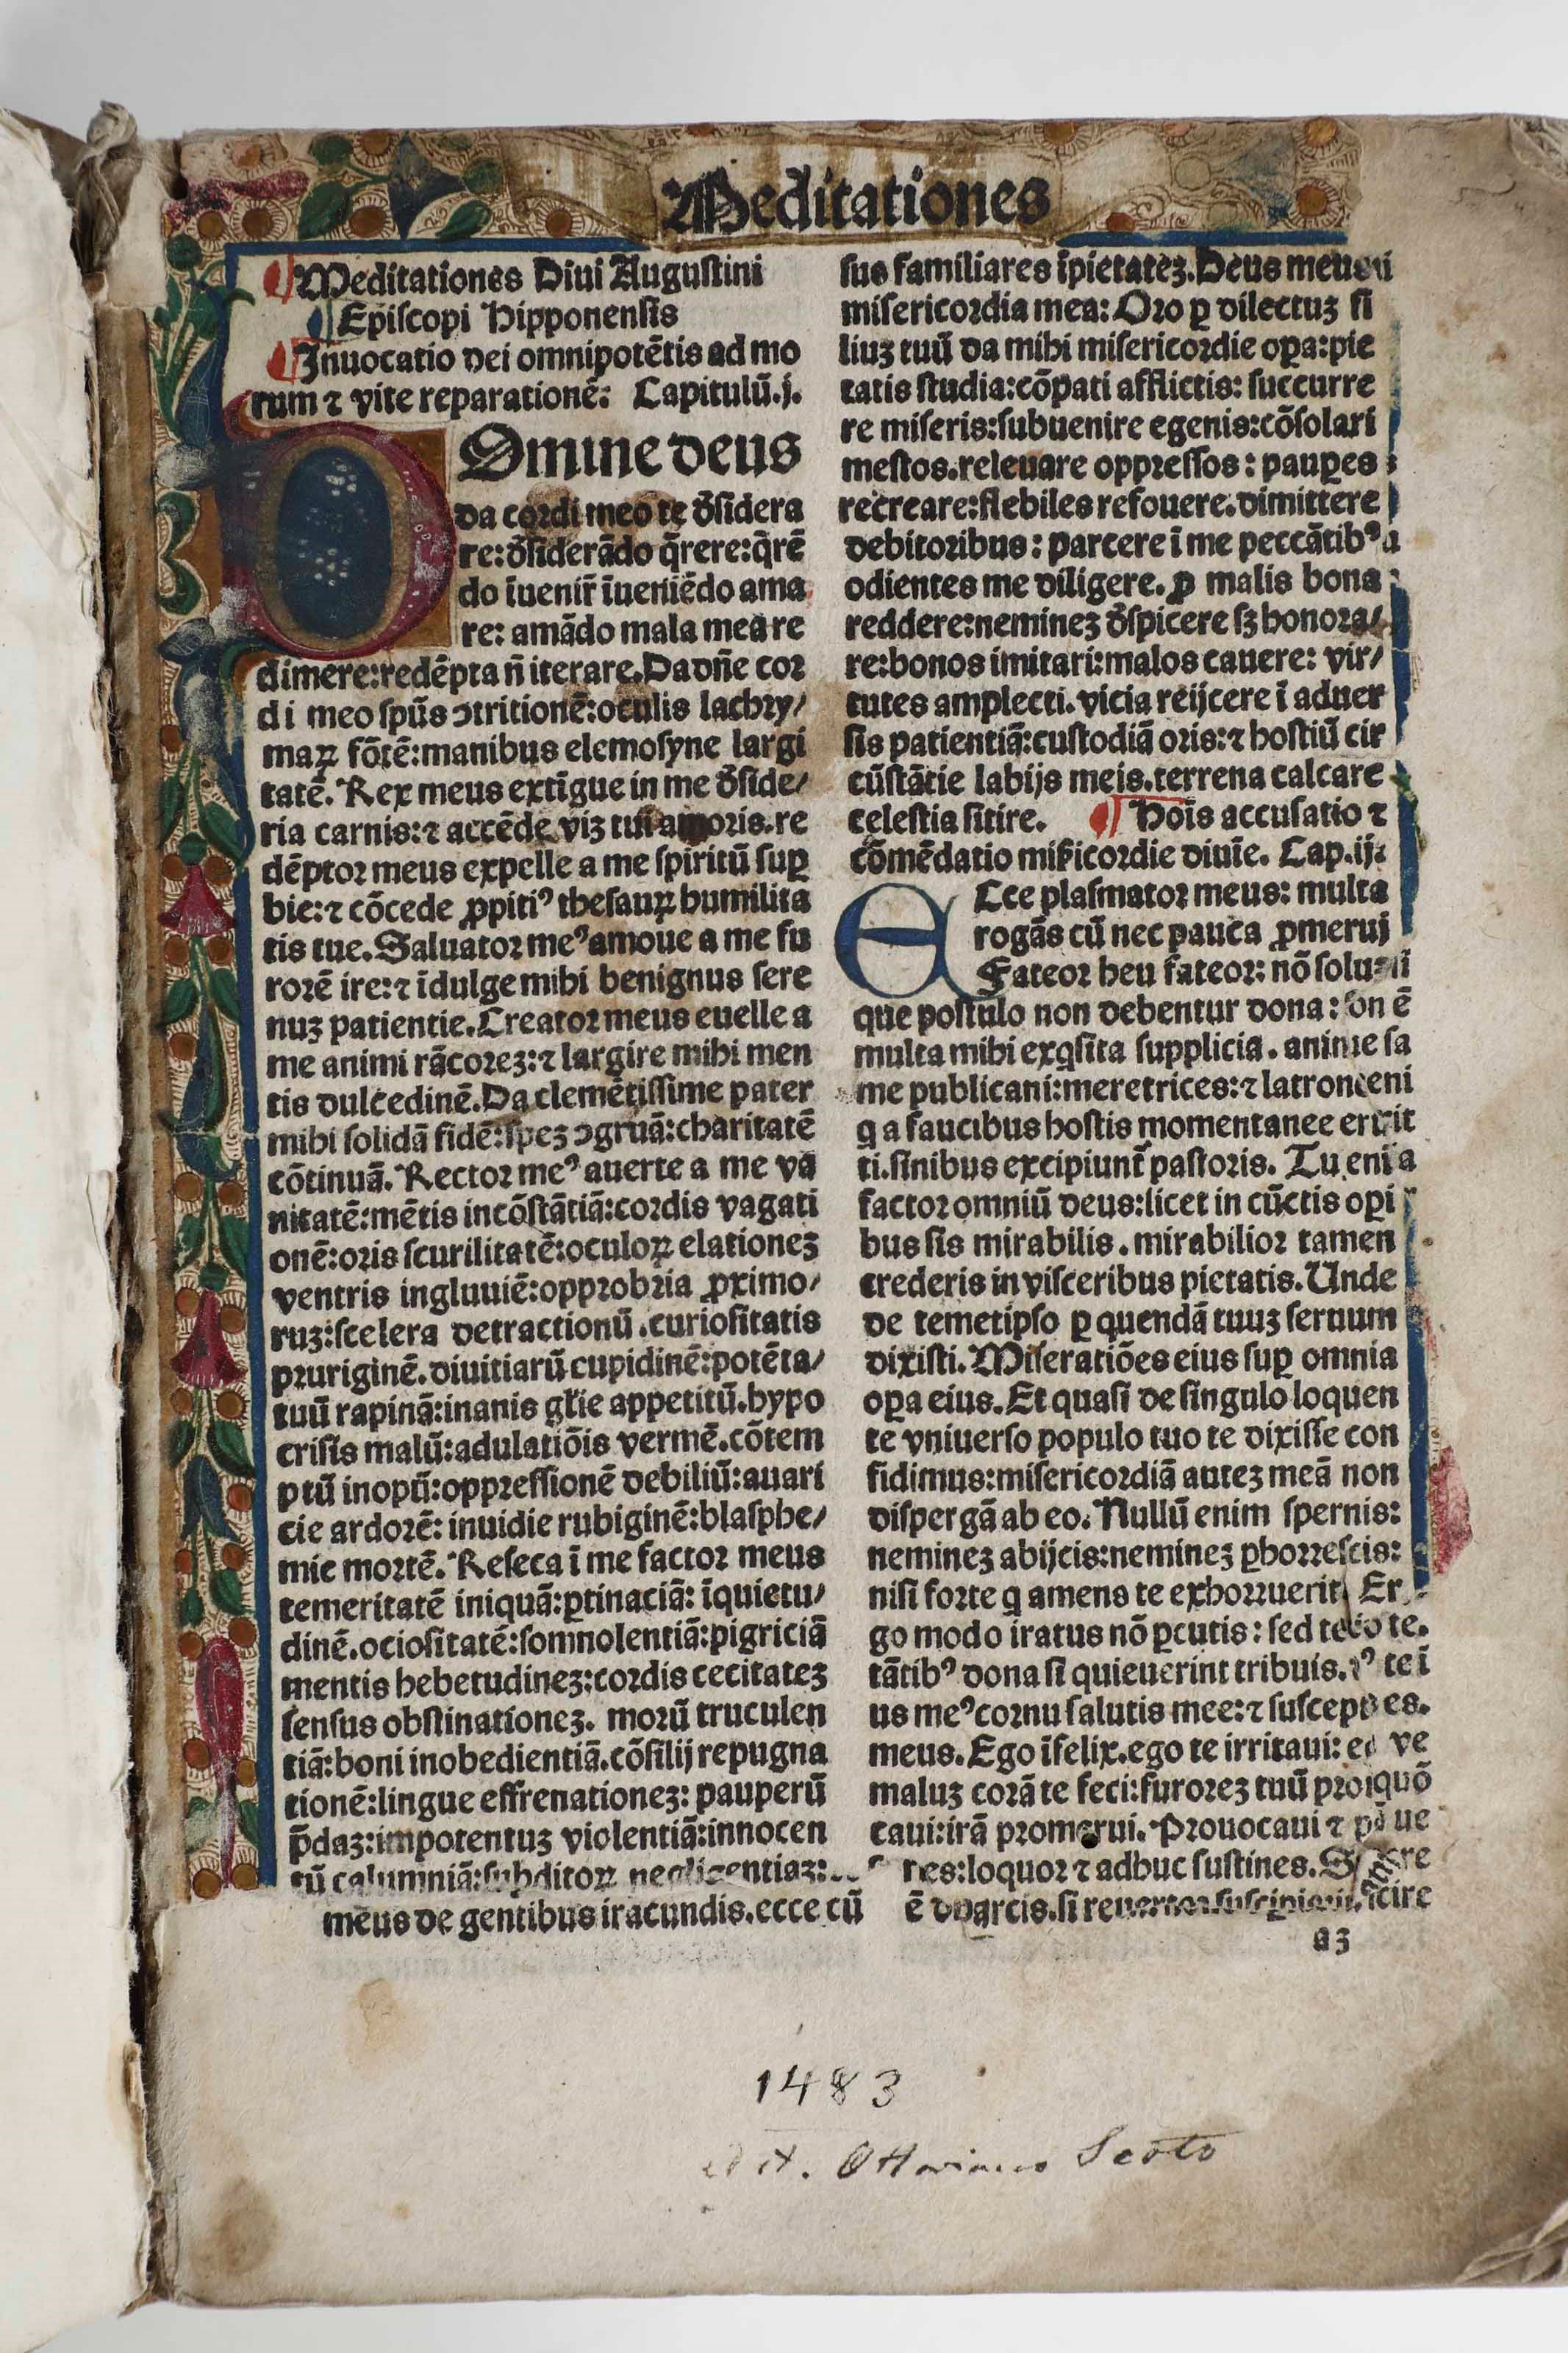 Meditationes
Meditationes Diui Augustini
Episcopi Hipponensis
Inuocatio dei omnipotẽtis ad mo
rum ⁊ vite reparationẽ: Capitulũ.j.
DOmine deus
da cordi meo te d̃sidera
re:d̃siderãdo q̃rere:q̃rẽ
do ĩuenir̃ ĩueniẽdo ama
re: amãdo mala mea re
dimere:redẽpta ñ iterare.Da dñe cor
di meo spũs ↄtritionẽ:oculis lachry/
maꝝ fõtẽ:manibus elemosyne largi
tatẽ. Rex meus extĩgue in me d̃side/
ria carnis:⁊ accẽde viꝫ tui amoris.re
dẽptor meus expelle a me spiritũ suꝑ
bie:⁊ cõcede ꝓpitiꝰ thesauꝝ humilita
tis tue. Saluator meꝰ amoue a me fu
rorẽ ire:⁊ ĩdulge mihi benignus sere
nuꝫ patientie. Creator meus euelle a
me animi rãcoreꝫ:⁊ largire mihi men
tis dulcedinẽ. Da clemẽtissime pater
mihi solidã fidẽ:speꝫ ↄgruã:charitatẽ
cõtinuã. Rector meꝰ auerte a me va
nitatẽ:mẽtis incõstãtiã:cordis vagati
onẽ:oris scurilitatẽ:oculoꝝ elationeꝫ
ventris ingluuiẽ:opprobria ꝓximo/
ruꝫ:scelera detractionũ.curiositatis
pruriginẽ.diuitiarũ cupidinẽ:potẽta/
tuũ rapinã:inanis gl̃ie appetitũ.hypo
crisis malũ:adulatiõis vermẽ.cõtem
ptũ inopũ:oppressionẽ debiliũ:auari
cie ardorẽ: inuidie rubiginẽ:blasphe/
mie mortẽ. Reseca ĩ me factor meus
temeritatẽ iniquã:ꝑtinaciã: ĩquietu/
dinẽ.ociositatẽ:somnolentiã:pigriciã
mentis hebetudineꝫ:cordis cecitateꝫ
sensus obstinationeꝫ. morũ truculen
tiã:boni inobedientiã.cõsilij repugna
tionẽ:lingue effrenationeꝫ: pauperũ
p̃daꝫ:impotentuꝫ violentiã:innocen
tũ calumniã:subditoꝝ negligentiaꝫ:
meus de gentibus iracundis.ecce cũ
sus familiares ĩpietateꝫ.Deus meus
misericordia mea: Oro ꝑ dilectuꝫ fi
liuꝫ tuũ da mihi misericordie oꝑa:pie
tatis studia:cõpati afflictis: succurre
re miseris:subuenire egenis:cõsolari
mestos.releuare oppressos: pauꝑes
recreare:flebiles refouere.dimittere
debitoribus: parcere ĩ me peccãtibꝰ
odientes me diligere. ꝓ malis bona
reddere:nemineꝫ d̃spicere sꝫ honora/
re:bonos imitari:malos cauere: vir/
tutes amplecti. vicia reijcere ĩ aduer
sis patientiã:custodiã oris:⁊ hostiũ cir
cũstãtie labijs meis.terrena calcare
celestia sitire. Hoĩs accusatio ⁊
cõmẽdatio mis̃icordie diuĩe. Cap.ij.
ECce plasmator meus: multa
rogãs cũ nec pauca ꝓmerui
Fateor heu fateor: nõ soluꝫ
que postulo non debentur dona:
multa mihi exq̃sita supplicia. anime sa
me publicani:meretrices:⁊ latron
q a faucibus hostis momentanee er
ti.sinibus excipiunt̃ pastoris. Tu eni
factor omniũ deus:licet in cũctis oꝑi
bus sis mirabilis.mirabilior tamen
crederis in visceribus pietatis. Unde
de temetipso ꝑ quendã tuuꝫ seruum
dixisti. Miseratiões eius suꝑ omnia
oꝑa eius. Et quasi de singulo loquen
te vniuerso populo tuo te dixisse con
fidimus:misericordiã auteꝫ meã non
dispergã ab eo. Nullũ enim spernis:
nemineꝫ abijcis:nemineꝫ ꝑhorrescis:
nisi forte q amens te exhorruerit Er
go modo iratus nõ ꝑcutis: sed te
tãtibꝰ dona si quieuerint tribuis.
us meꝰ cornu salutis mee:⁊ suscep
meus. Ego ĩfelix.ego te irritaui:
maluꝫ corã te feci:furoreꝫ tuũ pro
caui:irã promerui. Prouocaui ⁊
res:loquor ⁊ adhuc sustines.
ẽ parcis.si reuertor suscipis:
a3
1483
edit. Ottaviano Scoto